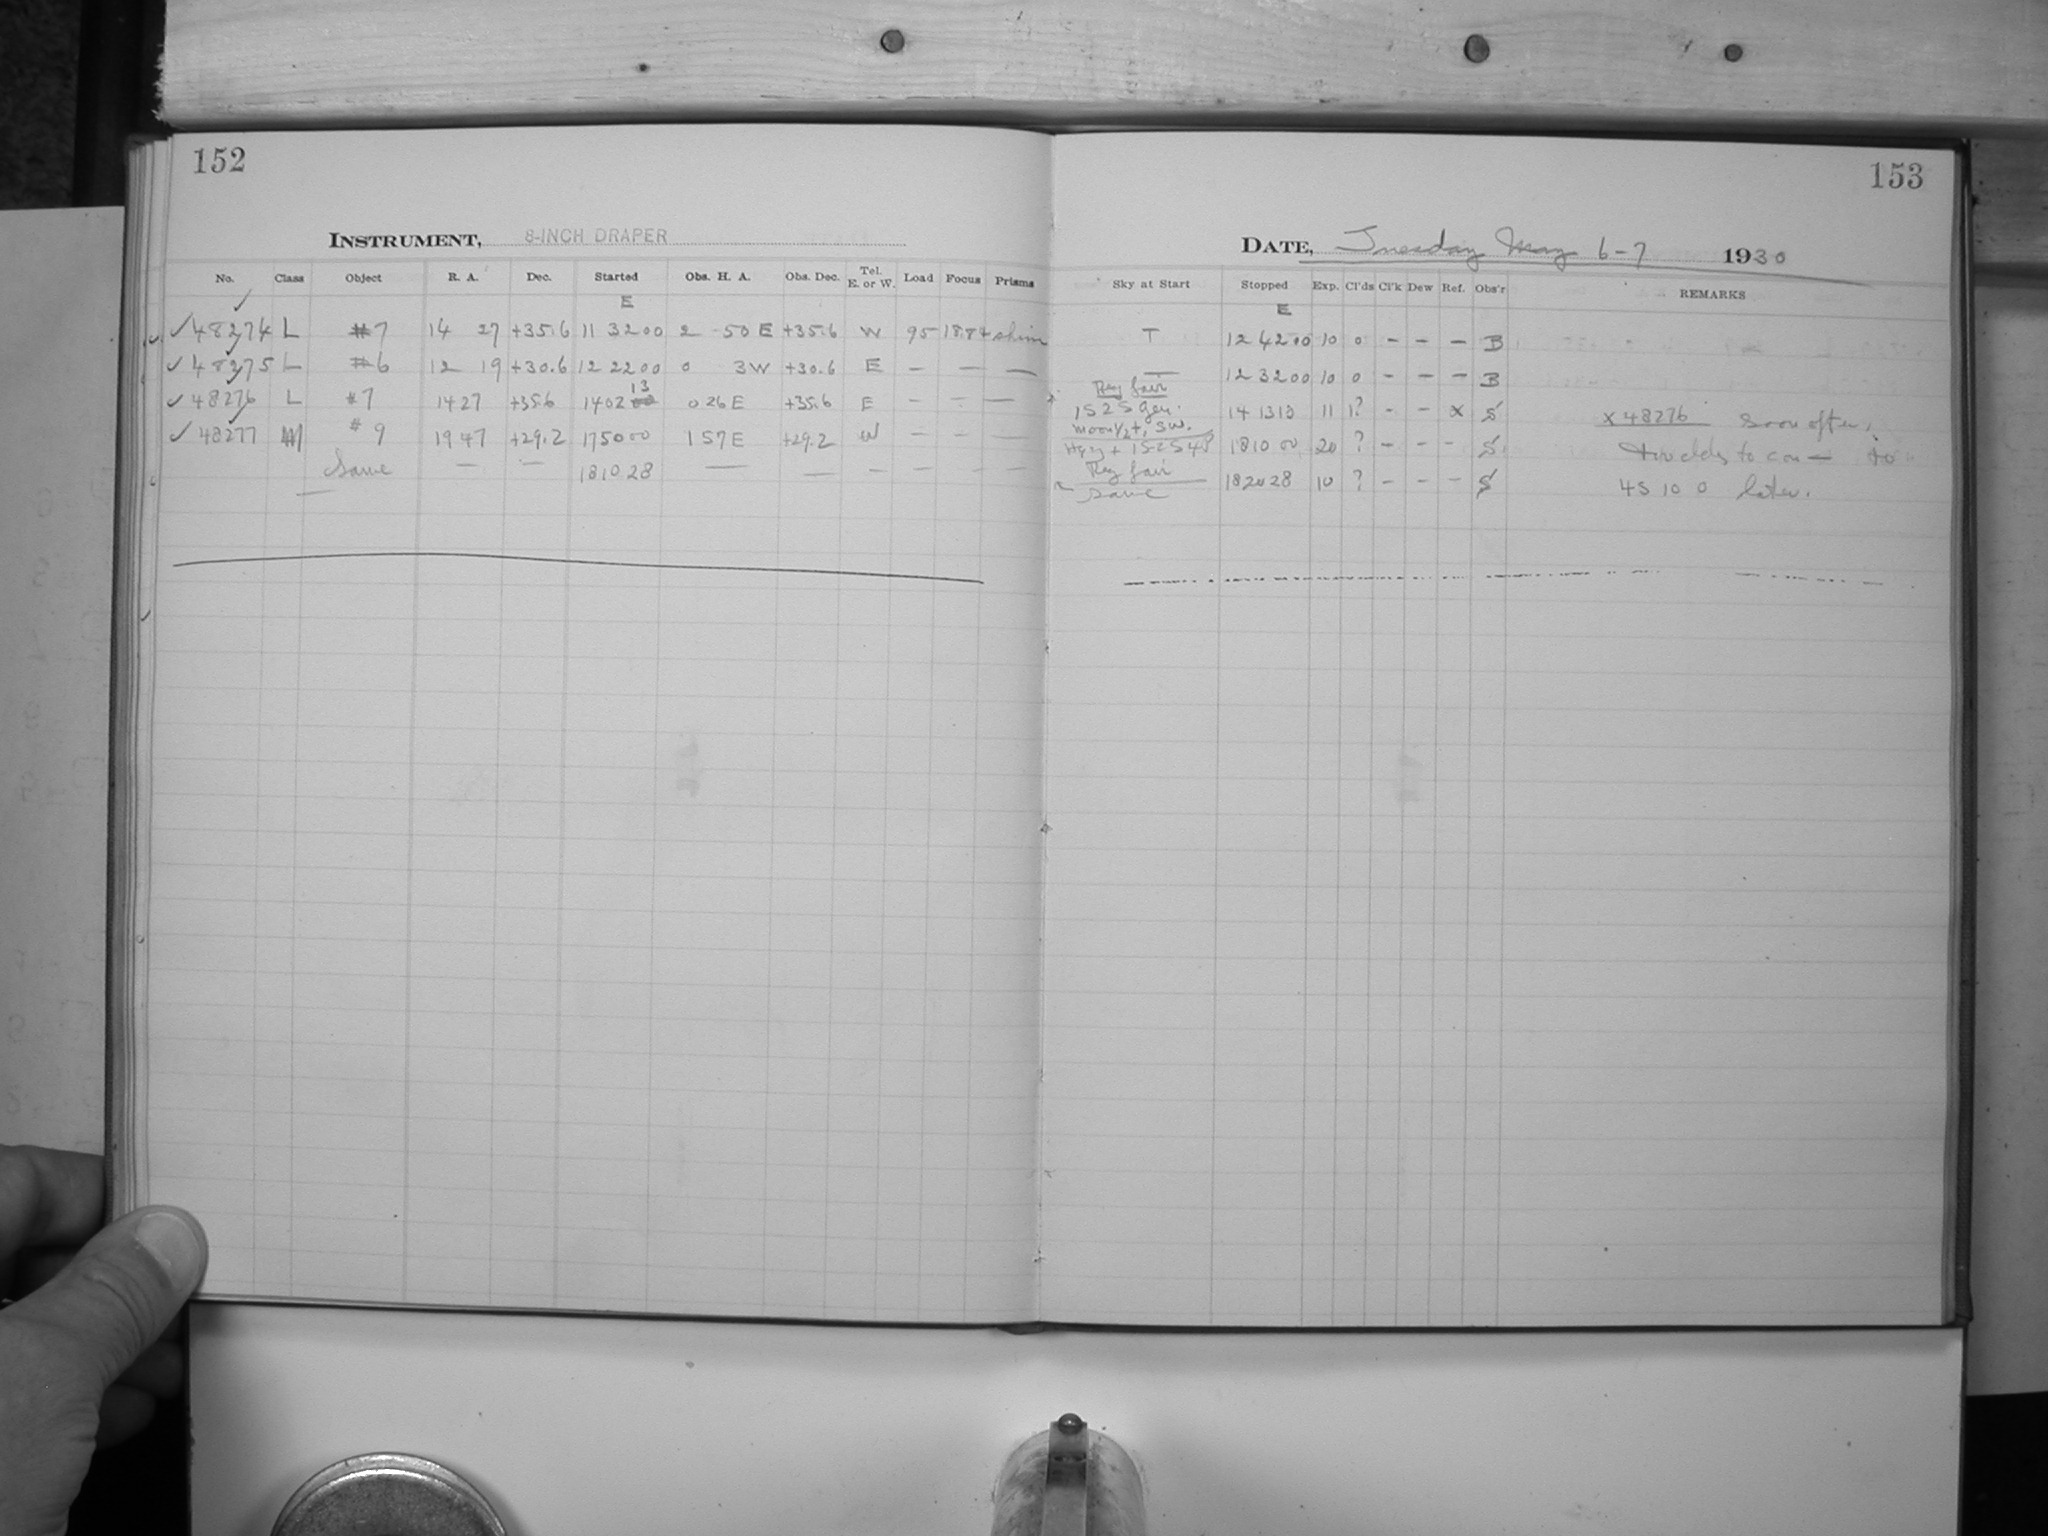 152
153
INSTRUMENT, 8-INCH DRAPER
DATE, Tuesday May 6-7 1930
No. Class Object R. A. Dec. Started Obs. H. A. Obs. Dec. Tel. E. or W. Load Focus Prisms
Sky at Start Stopped Exp. Cl'ds Cl'k Dew Ref. Obs'r REMARKS
E
E
✓ 48274 L #7 14 27 +35.6 11 32 00 2 50 E +35.6 W 95 18.84
T 12 42 00 10 0 - - - B
✓ 48275 L #6 12 19 +30.6 12 22 00 0 3W +30.6 E — — —
— 12 32 00 10 0 - - - B
13
✓ 48276 L #7 14 27 +35.6 14 02 0 26 E +35.6 E - - —
Reg fair
1525 gen.
moon 1/2+, SW.
14 13 13 11 1? - - x S
x 48276 soon after,
✓ 48277 #9 19 47 +29.2 17 50 00 1 57 E +29.2 W - - —
18 10 00 20 ? - - - S
to con — to
Same — — 18 10 28 — — - - - -
Reg fair
same 18 20 28 10 ? - - - S
45 10 0 later.